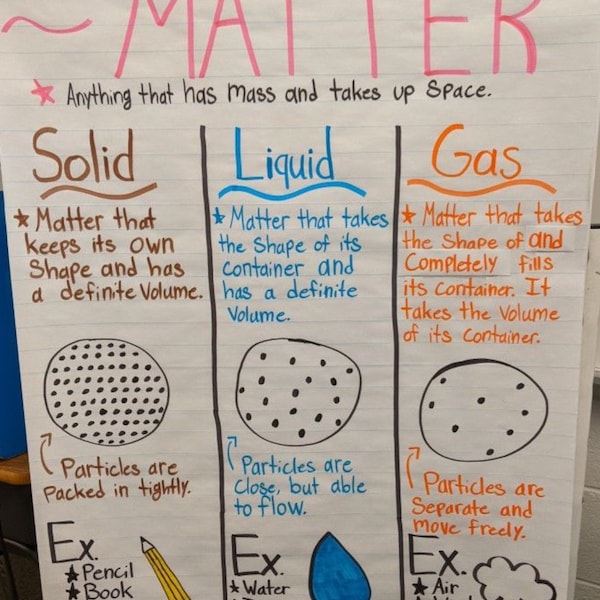 ~ MATTER
★ Anything that has mass and takes up space.
Solid
★ Matter that
keeps its own
Shape and has
a definite Volume.
Particles are
packed in tightly.
Ex.
★ Pencil
★ Book
Liquid
★ Matter that takes
the Shape of its
Container and
has a definite
Volume.
Particles are
Close, but able
to flow.
Ex.
★ Water
Gas
★ Matter that takes
the Shape of and
Completely fills
its Container. It
takes the Volume
of its Container.
Particles are
Separate and
move freely.
Ex.
★ Air